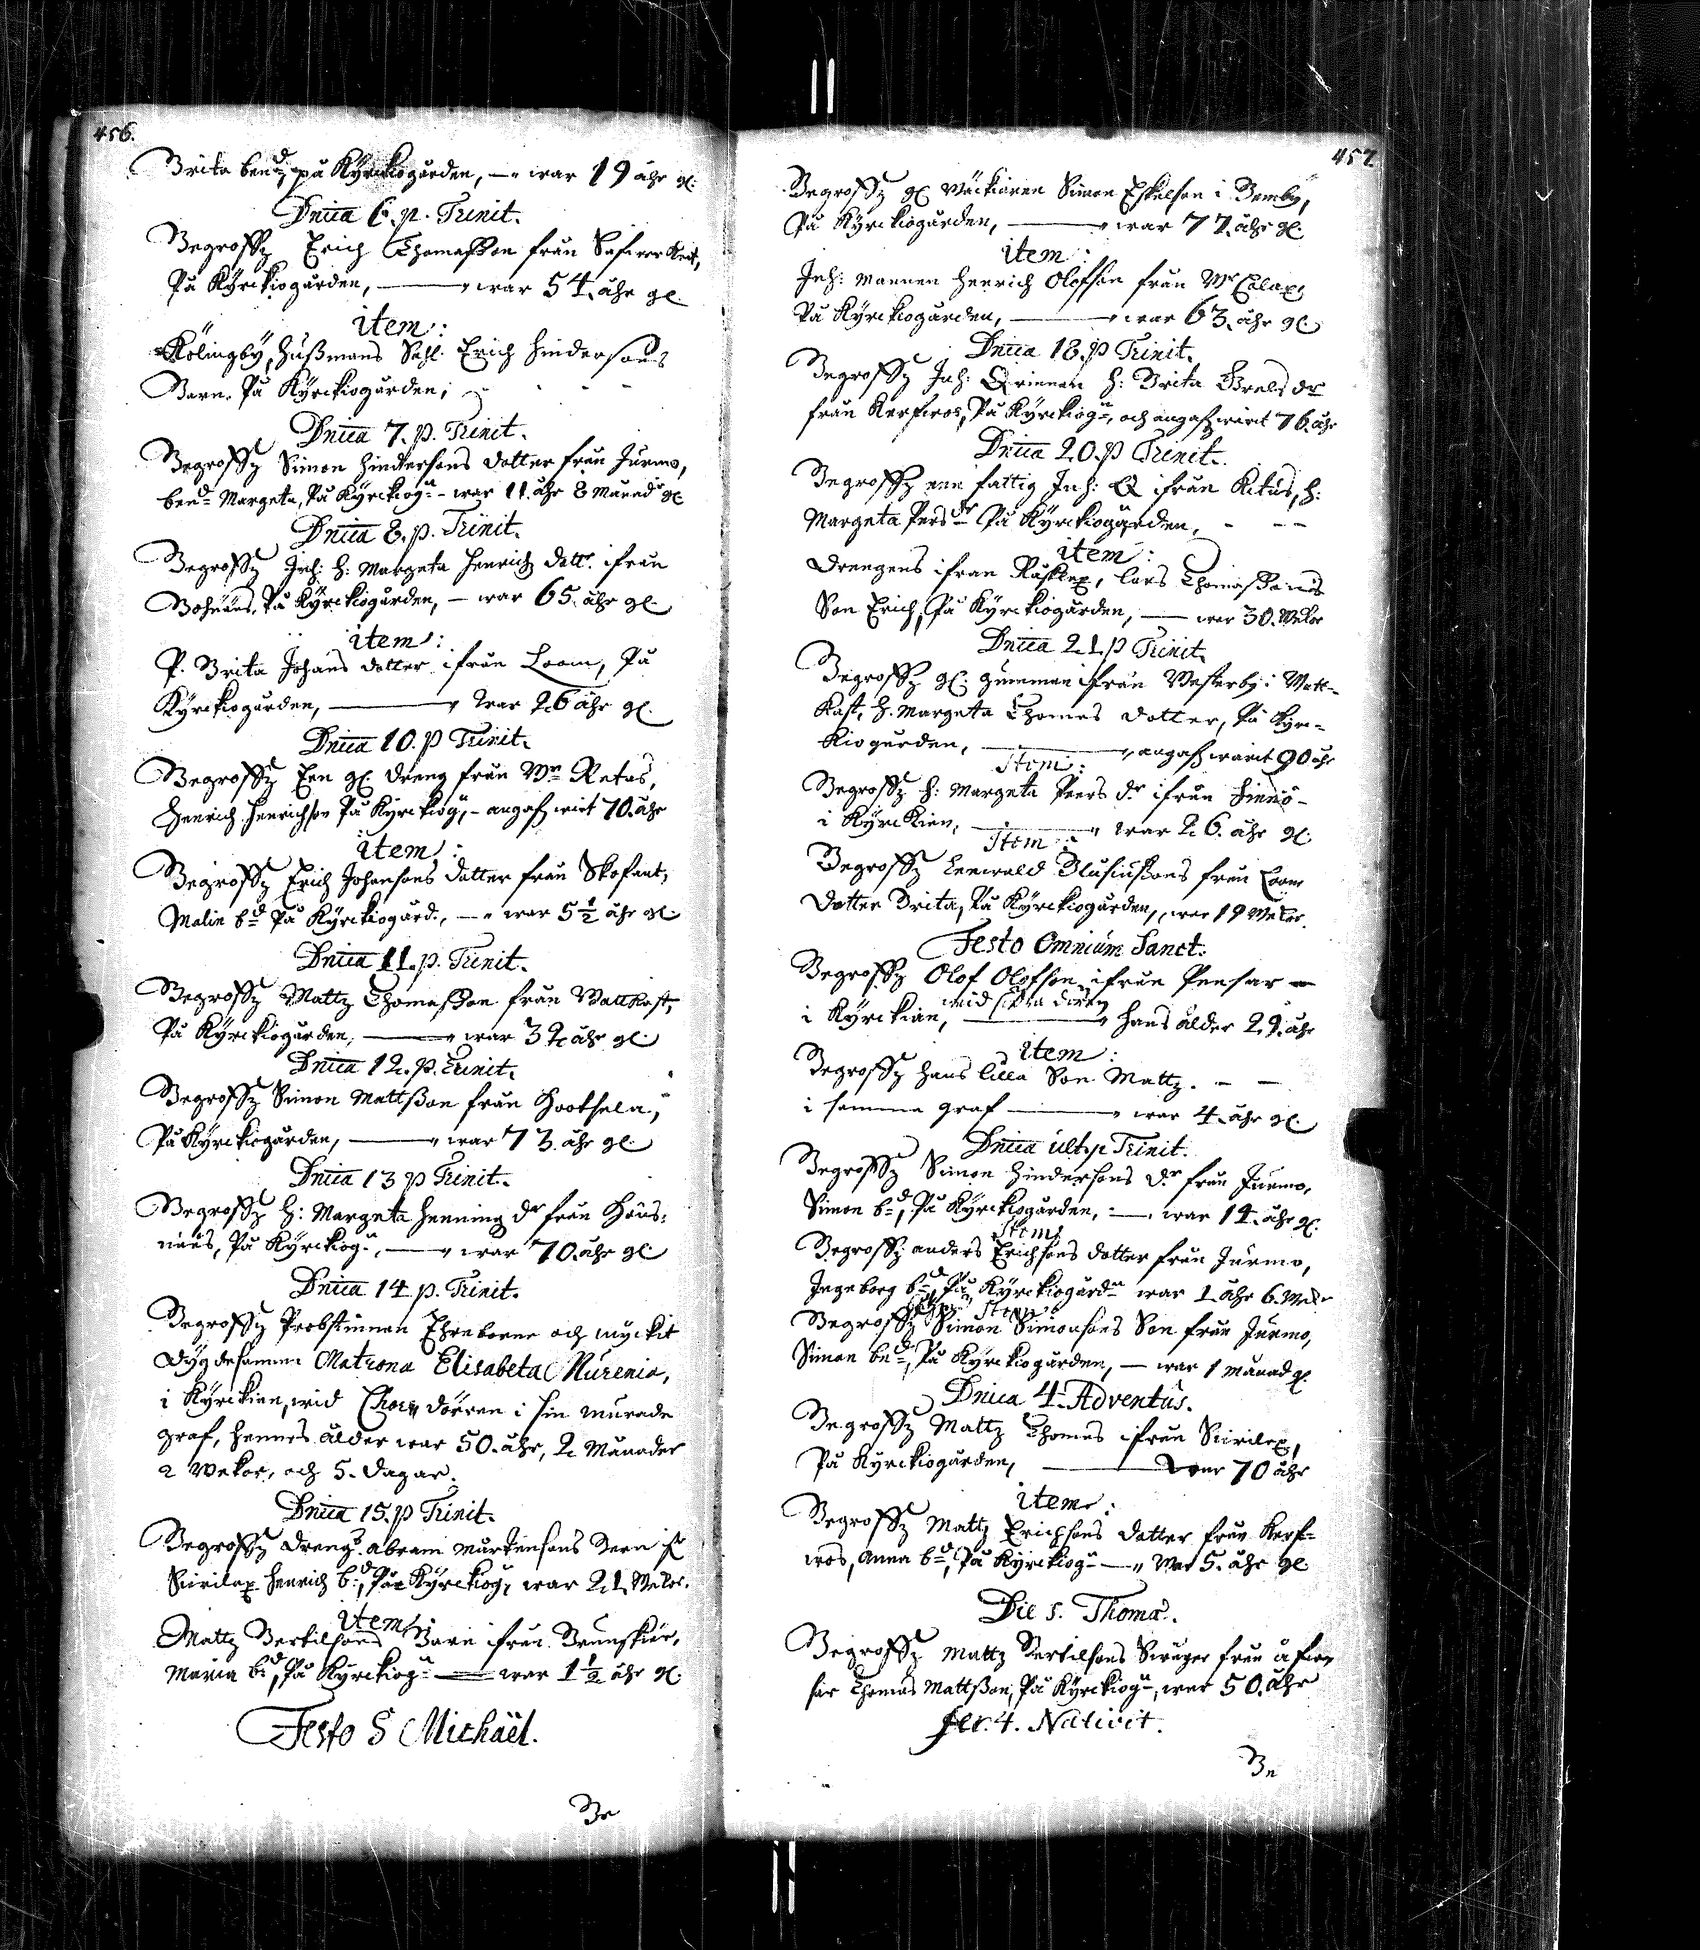 456.
Brita ben:d, på Kÿrckiogården, — war 19 åhr gl.
Dnica 6. p. Trinit.
Begrofz Erich Thomasson från
På Kÿrckiogården, — war 54. åhr gl.
item:
Kölingbÿ, Hußmans Sahl. Erich Hindersons
Barn. På Kÿrckiogården,
Dnica 7. p. Trinit.
Begrofz Simon Hindersons dotter från Jurmo,
ben:d Margeta, På Kÿrckiog:n - war 11. åhr 8 månad:r gl
Dnica 8. p. Trinit.
Begrofz Inh: H: Margeta Henrichz dott:r ifrån
Bohnäs, På Kÿrckiogården, — war 65. åhr gl.
item:
P. Brita Johans dotter ifrån Loom, På
Kÿrckiogården, — war 26 åhr gl.
Dnica 10. p Trinit.
Begrofz Een gl. dreng från W:n Retas,
Henrich Henrichson På Kÿrckiog:n, - angafz wirt 70. åhr
item:
Begrofz Erich Johansons dotter från Skofant,
Malin b:d På Kÿrckiogård., — war 5 1/2 åhr gl.
Dnica 11. p. Trinit.
Begrofz Mattz Thomasson från Wattkast,
På Kÿrckiogården, — war 32 åhr gl.
Dnica 12. p. Trinit.
Begrofz Simon Mattßon från
På Kÿrckiogården, — war 73. åhr gl.
Dnica 13 p Trinit.
Begrofz H: Margeta Henning d:r från Höns-
näs, På Kÿrckiog:n, — war 70. åhr gl.
Dnica 14 p. Trinit.
Begrofz Probstinnan Ehreborne och mÿckit
dÿgdesamme Matrona Elisabeta Nurenia,
i Kÿrckian, wid dörren i sin murade
graf, Hennes ålder war 50. åhr, 2 Månader
2 Wekor, och 5. dagar.
Dnica 15. p Trinit.
Begrofz drengs Abram Mårtensons
Henrich b:d, På Kÿrckiog, war 21 Wekor.
item:
Mattz Bertilsons Barn ifrån Brunskiär,
Maria b:d, På Kÿrckiog:n — war 1 1/2 åhr gl.
Festo S Michäel.
Be
457
Begrofz gl Wäcktaren Simon Eskilson i Bembÿ,
På Kÿrckiogården, — war 77. åhr gl.
item:
Inh: mannen Henrich Olofson från
På Kÿrckiogården, — war 63. åhr gl.
Dnica 18. p Trinit.
Begrofz Inh: Qvinnan H: Brita d:r
från På Kÿrckiog:n, och angafz warit 76. åhr
Dnica 20. p Trinit.
Begrofz een fattig Inh: Q ifrån Kitus, H:
Margeta Pers d:r På Kÿrckiogården, - - -
item:
Drengens ifrån Lars Thomassons
Son Erich, På Kÿrckiogården, — war 30. Wekor
Dnica 21. p Trinit.
Begrofz gl: gumman ifrån Westerbÿ i Watt-
kast, H. Margeta Thomas dotter, På Kÿrc-
kiogården, — angafz warit 90 åhr
Item:
Begrofz H: Margeta Peers d:r ifrån Finnö
i Kÿrckien, — war 26. åhr gl:
Item:
Begrofz från Loom
Dotter Brita, På Kÿrckiogården, war 19 Wekor.
Festo Omnium Sanct:
Begrofz Olof Olofson ifrån Pensar
i Kÿrckian, — Hans ålder 29. åhr
item:
Begrofz Hans lilla Son Mattz. - -
i samma graf — war 4. åhr gl.
Dnica ult. p Trinit.
Begrofz Simon Hindersons d:r från Jurmo,
Simon b:d, På Kÿrckiogården, — war 14. åhr gl.
Item:
Begrofz Anders Erichsons dotter från Jurmo,
Ingeborg b:d, På Kÿrckiogård:n war 1 åhr 6. Wek:r
Item:
Begrofz Simon Simonsons Son från Jurmo,
Simon be:d, På Kÿrckiogården, — war 1 månad gl.
Dnica 4. Adventus.
Begrofz Mattz Thomas ifrån
På Kÿrckiogården, — war 70 åhr
item:
Begrofz Mattz Erichsons dotter från
Anna b:d, På Kÿrckiog:n — war 5. åhr gl.
Die S. Thomæ.
Begrofz Mattz Bertilsons Swåger från
Thomas Mattßon, På Kÿrckiog:n, war 50. åhr
Fer. 4. Nativit.
Be